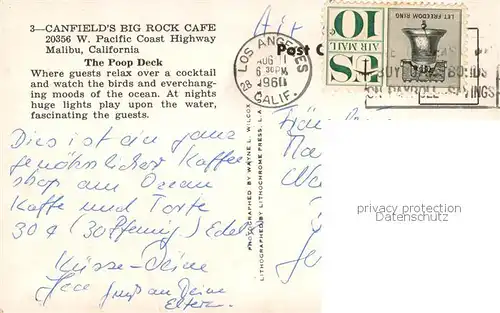 3—CANFIELD'S BIG ROCK CAFE
20356 W. Pacific Coast Highway
Malibu, California
The Poop Deck
Where guests relax over a cocktail
and watch the birds and everchang-
ing moods of the ocean. At nights
huge lights play upon the water,
fascinating the guests.
Air
Post C
LOS ANGELES
AUG
6 30PM
1960
28
CALIF.
U.S.
AIR MAIL
10
LET FREEDOM RING
BUY BONDS
ON PAYROLL SAVINGS
PHOTOGRAPHED BY WAYNE L. WILCOX
LITHOGRAPHED BY LITHOCHROME PRESS, L.A.
Dies ist ein ganz
gewöhnlicher Kaffee
shop am Ocean
Kaffe und Torte
30¢ (30 Pfennig)
Küsse - Deine
Gruß an Deine
Eltern.
privacy protection
Datenschutz